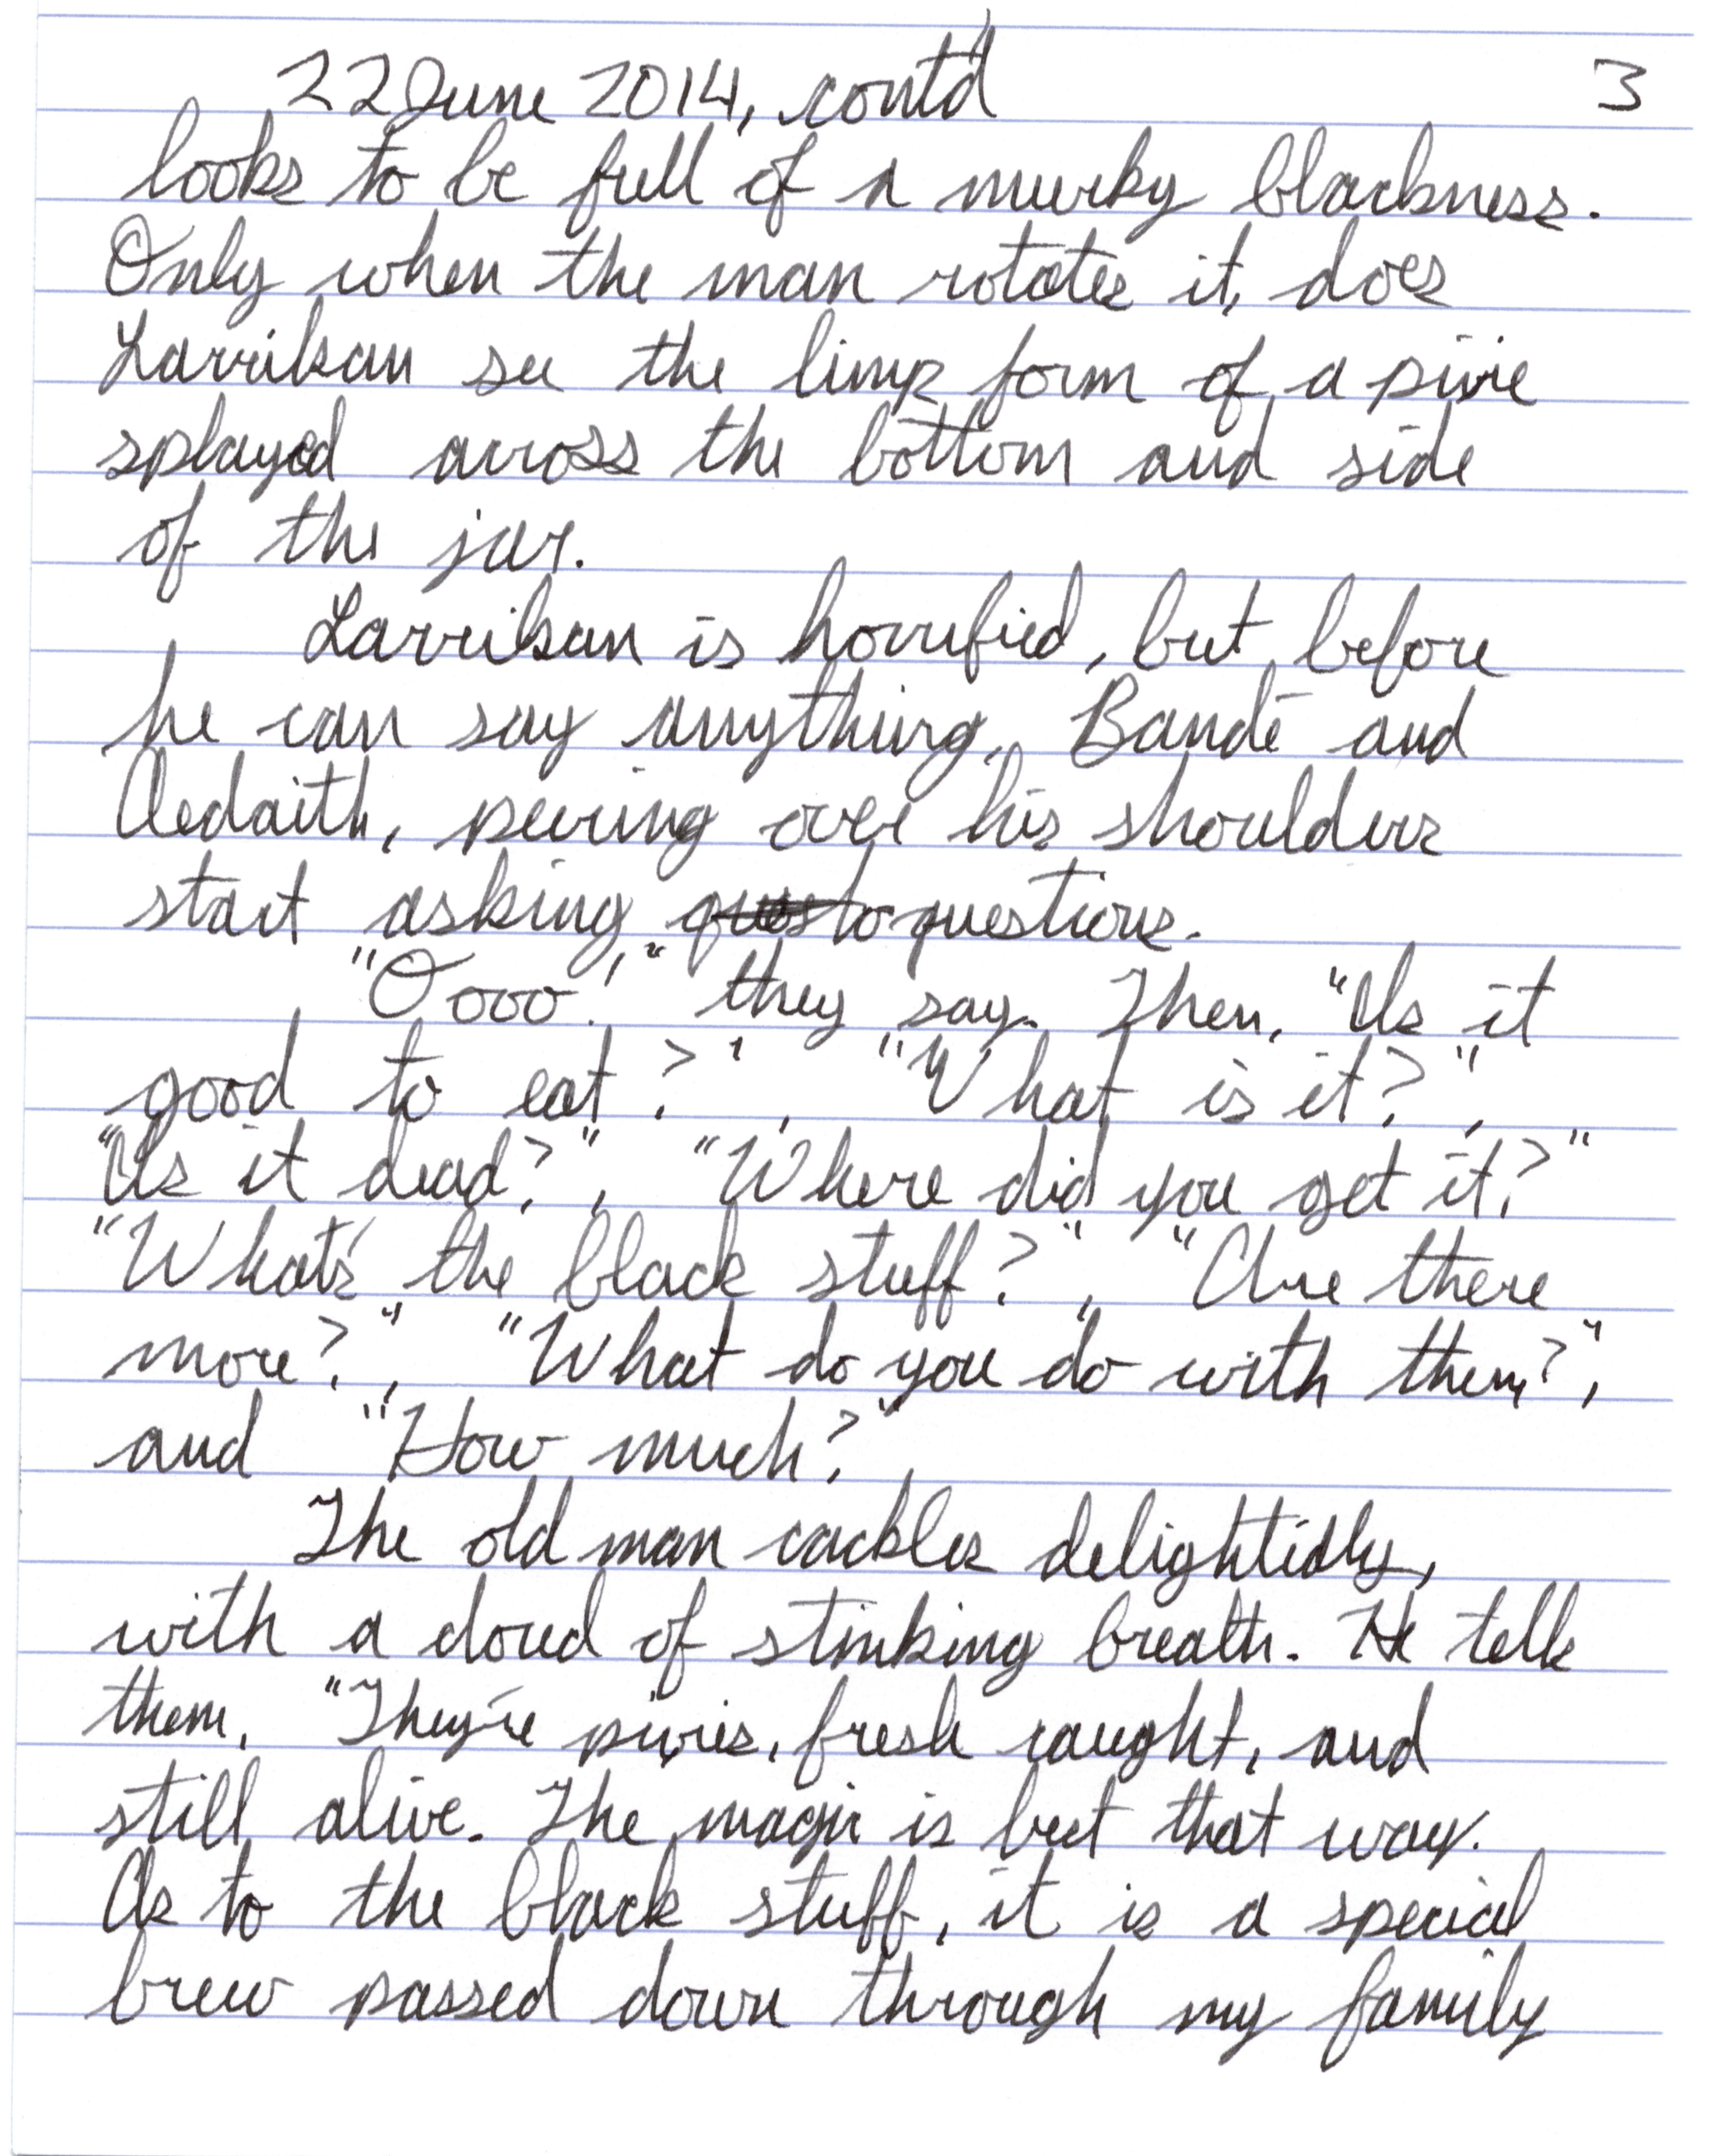 22 June 2014, cont'd 3
looks to be full of a murky blackness.
Only when the man rotates it, does
Larrikan see the limp form of a pixie
splayed across the bottom and side
of the jar.
Larrikan is horrified, but before
he can say anything, Bandé and
Aedaith, peering over his shoulders
start asking questo questions.
"Oooo!" they say. Then, "Is it
good to eat?", "What is it?",
"Is it dead?", "Where did you get it?"
"What's the black stuff?", "Are there
more?", "What do you do with them?",
and "How much?"
The old man cackles delightidly,
with a cloud of stinking breath. He tells
them, "They're pixies, fresh caught, and
still alive. The magic is best that way.
As to the black stuff, it is a special
brew passed down through my family